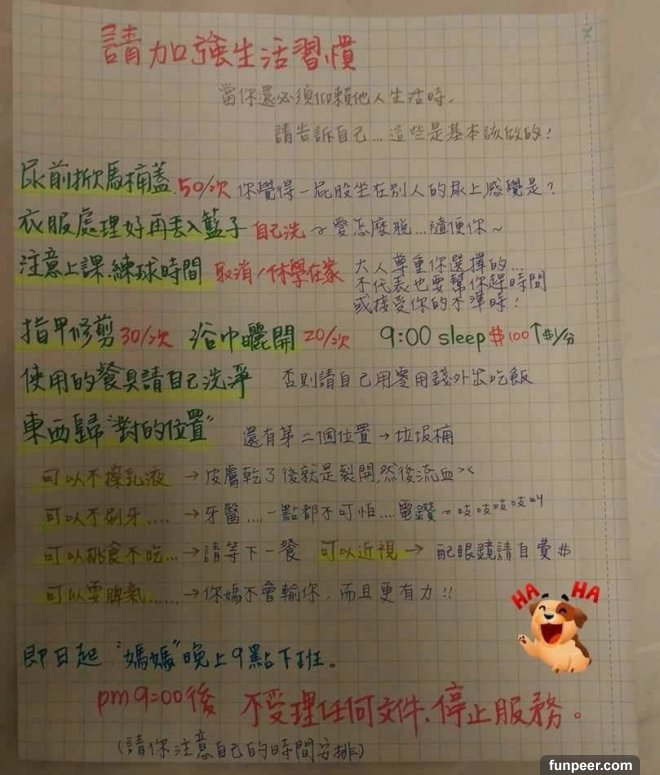 請加強生活習慣
當你還必須仰賴他人生活時,
請告訴自己...這些是基本該做的!
尿前掀馬桶蓋 50/次 你覺得一屁股坐在別人的尿上,感覺是?
衣服處理好再丟入籃子 自己洗 ~ 愛怎麼脫...隨便你~
注意上課.練球時間 取消/休學在家 大人尊重你選擇的...
不代表也要幫你趕時間
或接受你的不準時!
指甲修剪 30/次 浴巾曬開 20/次 9:00 sleep $100↑$1/分
使用的餐具請自己洗淨 否則請自己用零用錢外出吃飯
東西歸"對的位置" 還有第二個位置→垃圾桶
可以不擦乳液 →皮膚乾了後就是裂開,然後流血><
可以不刷牙.....→牙醫....一點都不可怕....電鑽~吱吱吱吱叫
可以挑食不吃...→請等下一餐 可以近視→ 配眼鏡請自費$
可以耍脾氣......→你媽不會輸你.而且更有力!!
HA HA
即日起."媽媽"晚上9點下班。
pm9:00後 不受理任何文件.停止服務。
(請你注意自己的時間安排)
funpeer.com